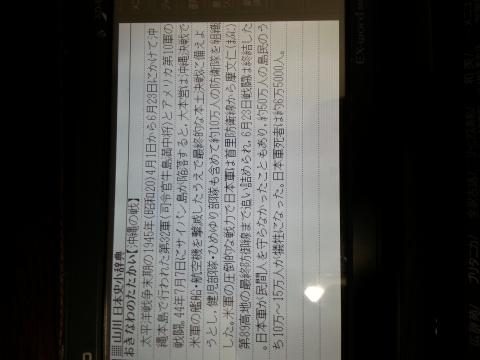 山川 日本史小辞典
おきなわのたたかい【沖縄の戦】
太平洋戦争末期の1945年(昭和20)4月1日から6月23日にかけて沖
縄本島で行われた第32軍(司令官牛島満中将)とアメリカ第10軍の
戦闘。44年7月7日にサイパン島が陥落すると,大本営は沖縄決戦で
米軍の艦船・航空機を撃滅したうえで最終的な本土決戦に備えよ
うとし,健児部隊・ひめゆり部隊も含めて約10万人の防衛隊を組織
した。米軍の圧倒的な戦力で日本軍は首里防衛線から摩文仁(まぶに)
第89高地の最終防御線まで追い詰められ,6月23日戦闘は終結した
。日本軍が民間人を守らなかったこともあり,約50万人の島民のう
ち10万~15万人が犠牲になった。日本軍死者は約6万5000人。
EX-word